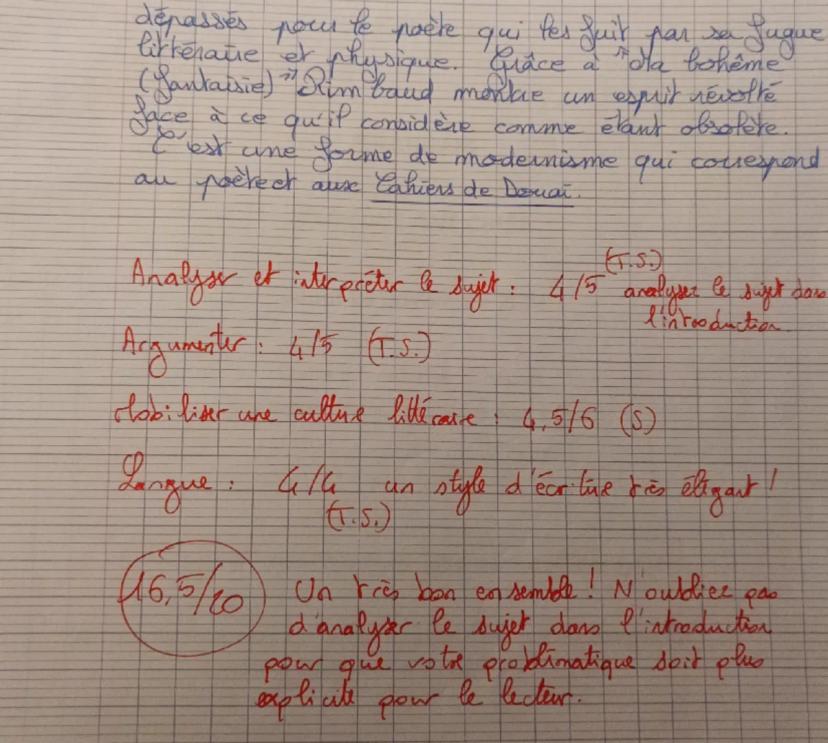 dépassés pour le poète qui les fuit par sa fugue
littéraire et physique. Grâce à "Ma bohême
(fantaisie)" Rimbaud montre un esprit révolté
face à ce qu'il considère comme étant obsolète.
C'est une forme de modernisme qui correspond
au poète et aux Cahiers de Douai.
Analyser et interpréter le sujet : 4/5 (T.S.) analyser le sujet dans
l'introduction
Argumenter : 4/5 (T.S.)
Mobiliser une culture littéraire : 4,5/6 (S)
Langue : 4/4 un style d'écriture très élégant !
(T.S.)
16,5/20 Un très bon ensemble ! N'oubliez pas
d'analyser le sujet dans l'introduction
pour que votre problématique soit plus
explicite pour le lecteur.